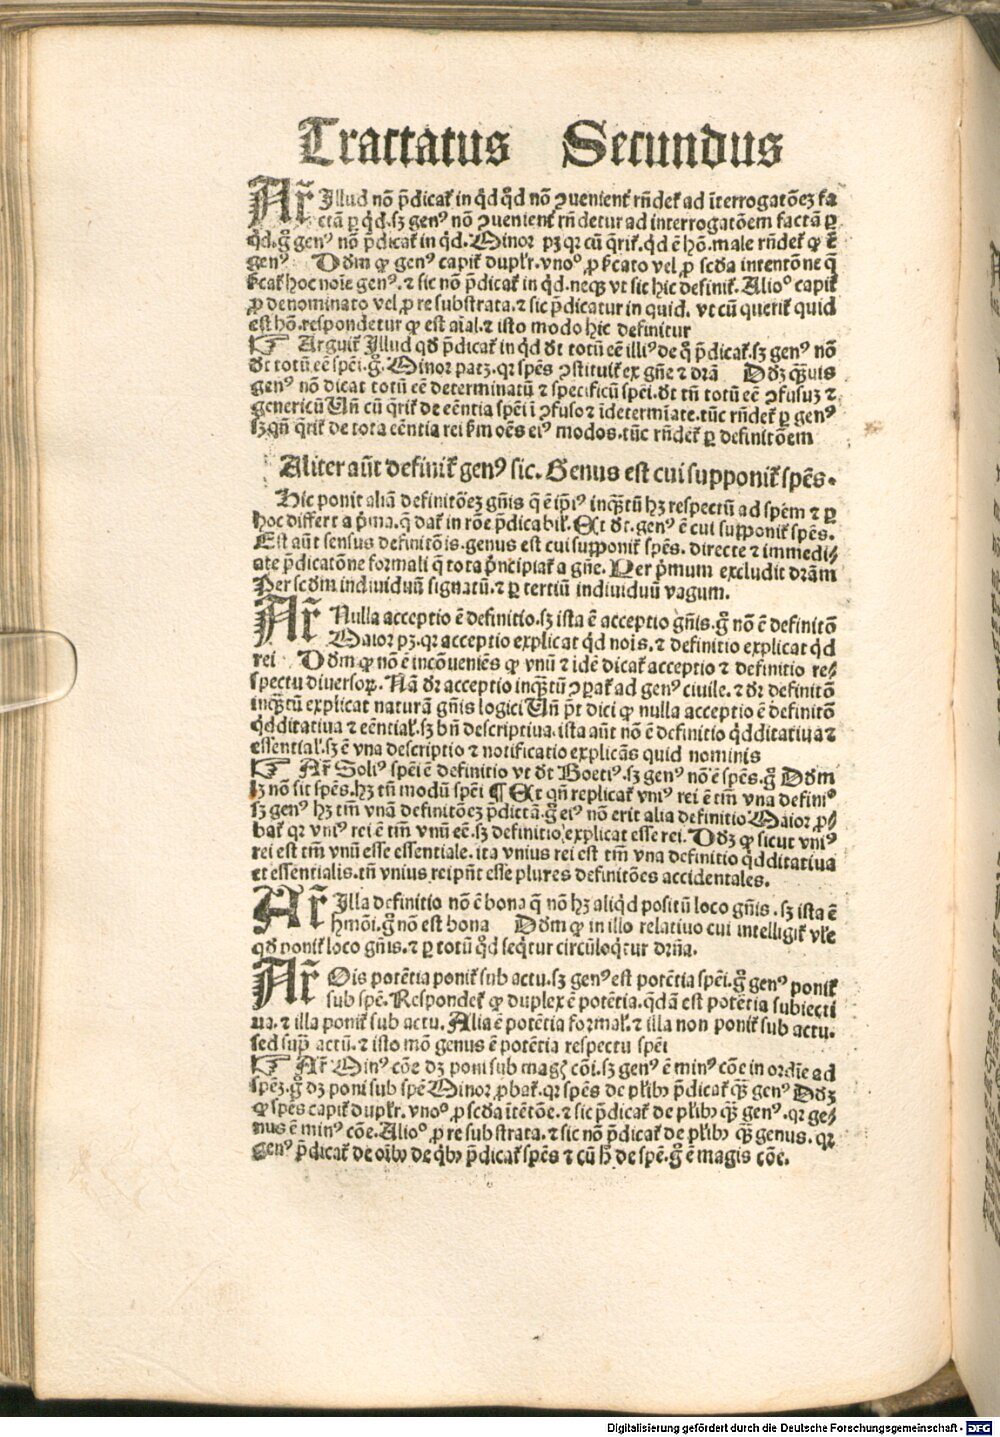 Tractatus Secundus
Ar̃ Illud nō p̄dicat᷑ in qͥd qͦd nō ꝯuenient᷑ rñdet᷑ ad īterrogatōeꝫ fa
ctā ꝑ qͥd. sꝫ genꝰ nō ꝯuenient᷑ rñdetur ad interrogatōem factā ꝑ
qͥd. gͦ genꝰ nō p̄dicat᷑ in qͥd. Minor pꝫ qꝛ cū q̄rit᷑. qͥd ē hō. male rñdet᷑ ꝙ ē
genꝰ. Dōm ꝙ genꝰ capit᷑ duplr̄. vnoº ꝓ ẜcato vel ꝓ scd̄a intentōne q̄
ẜcat᷑ hoc noīe genꝰ. ⁊ sic nō p̄dicat᷑ in qͥd. neqꝫ vt sic hic definit᷑. Alioº capit᷑
ꝓ denominato vel ꝓ re substrata. ⁊ sic p̄dicatur in quid. vt cū querit᷑ quid
est hō. respondetur ꝙ est aīal. ⁊ isto modo hic definitur
☞ Arguit᷑ Illud qd̄ p̄dicat᷑ in qͥd dꝛ̄t totū eē illiꝰ de qͦ p̄dicat᷑. sꝫ genꝰ nō
dꝛ̄t totū eē spēi. gͦ. Minor patꝫ. qꝛ spēs ꝯstituit᷑ ex gn̄e ⁊ drā Dōꝫ qͣꝫuis
genꝰ nō dicat totū eē determinatū ⁊ specificū spēi. dꝛ̄t tn̄ totū eē ꝯfusuꝫ ⁊
genericū Vn̄ cū q̄rit᷑ de eēntia spēi ī ꝯfuso ⁊ īdetermīate. tūc rñdet᷑ ꝑ genꝰ
sꝫ qn̄ q̄rit᷑ de tota eēntia rei ẜm oēs eiꝰ modos. tūc rñdet᷑ ꝑ definitōem
Aliter aūt definit᷑ genꝰ sic. Genus est cui supponit᷑ spēs.
Hic ponit aliā definitōeꝫ gn̄is q̄ ē ip̄iꝰ inqͣꝫtū hꝫ respectū ad spēm ⁊ ꝑ
hoc differt a pͥma. q̄ dat᷑ in rōe p̄dicabil᷑. Et dꝛ̄t. genꝰ ē cui supponit᷑ spēs.
Est aūt sensus definitōis. genus est cui supponit᷑ spēs. directe ⁊ immedi⸗
ate p̄dicatōne formali q̄ tota pͥncipiat᷑ a gn̄e. Per pͥmum excludit drām
Per scd̄m individuū signatū. ⁊ ꝑ tertiū individuū vagum.
Ar̃ Nulla acceptio ē definitio. sꝫ ista ē acceptio gn̄is. gͦ nō ē definitō
Maior pꝫ. qꝛ acceptio explicat qͥd noīs. ⁊ definitio explicat qͥd
rei Dōm ꝙ nō ē incōueniēs ꝙ vnū ⁊ idē dicat᷑ acceptio ⁊ definitio re⸗
spectu diuersoꝝ. Nā dꝛ̄ acceptio inqͣꝫtū ꝯparat᷑ ad genꝰ ciuile. ⁊ dꝛ̄ definitō
inqͣꝫtū explicat naturā gn̄is logici Vn̄ pt̄ dici ꝙ nulla acceptio ē definitō
qͥdditatiua ⁊ eēntial᷑. sꝫ bn̄ descriptiua. ista aūt nō ē definitio qͥdditatiua ⁊
essential᷑. sꝫ ē vna descriptio ⁊ notificatio explicās quid nominis
☞ Ar̃ Soliꝰ spēi ē definitio vt dꝛ̄t Boetiꝰ. sꝫ genꝰ nō ē spēs. gͦ Dōm
lꝫ nō sit spēs. hꝫ tn̄ modū spēi ¶ Et qn̄ replicat᷑ vniꝰ rei ē tm̄ vna definiº
sꝫ genꝰ hꝫ tm̄ vnā definitōeꝫ p̄dictā. gͦ eiꝰ nō erit alia definitio Maior ꝓ⸗
bat᷑ qꝛ vniꝰ rei ē tm̄ vnū eē. sꝫ definitio explicat esse rei. Dōꝫ ꝙ sicut vniꝰ
rei est tm̄ vnū esse essentiale. ita vnius rei est tm̄ vna definitio qͥdditatiua
et essentialis. tn̄ vnius rei pn̄t esse plures definitōes accidentales.
Ar̃ Illa definitio nō ē bona q̄ nō hꝫ aliqͥd positū loco gn̄is. sꝫ ista ē
hmōi. gͦ nō est bona Dōm ꝙ in illo relatiuo cui intelligit᷑ vl̄e
qd̄ ponit᷑ loco gn̄is. ⁊ ꝑ totū qͦd seqͥtur circūloqͥtur drn̄a.
Ar̃ Oīs potētia ponit᷑ sub actu. sꝫ genꝰ est potētia spēi. gͦ genꝰ ponit᷑
sub spē. Respondet᷑ ꝙ duplex ē potētia. qͥdā est potētia subiecti
ua. ⁊ illa ponit᷑ sub actu. Alia ē potētia formal᷑. ⁊ illa non ponit᷑ sub actu.
sed supͣ actū. ⁊ isto mō genus ē potētia respectu spēi
☞ Ar̃ Minꝰ cōe dꝫ poni sub magꝭ cōi. sꝫ genꝰ ē minꝰ cōe in ordīe ad
spēꝫ. gͦ dꝫ poni sub spē Minor ꝓbat᷑. qꝛ spēs de pl̄ibꝫ p̄dicat᷑ qͣꝫ genꝰ Dōꝫ
ꝙ spēs capit᷑ duplr̄. vnoº ꝓ scd̄a ītētōe. ⁊ sic p̄dicat᷑ de pl̄ibꝫ qͣꝫ genꝰ. qꝛ ge⸗
nus ē minꝰ cōe. Alioº ꝓ re substrata. ⁊ sic nō p̄dicat᷑ de pl̄ibꝫ qͣꝫ genus. qꝛ
genꝰ p̄dicat᷑ de oībꝫ de qͥbꝫ p̄dicat᷑ spēs ⁊ cū hͦ de spē. gͦ ē magis cōe.
Digitalisierung gefördert durch die Deutsche Forschungsgemeinschaft - DFG